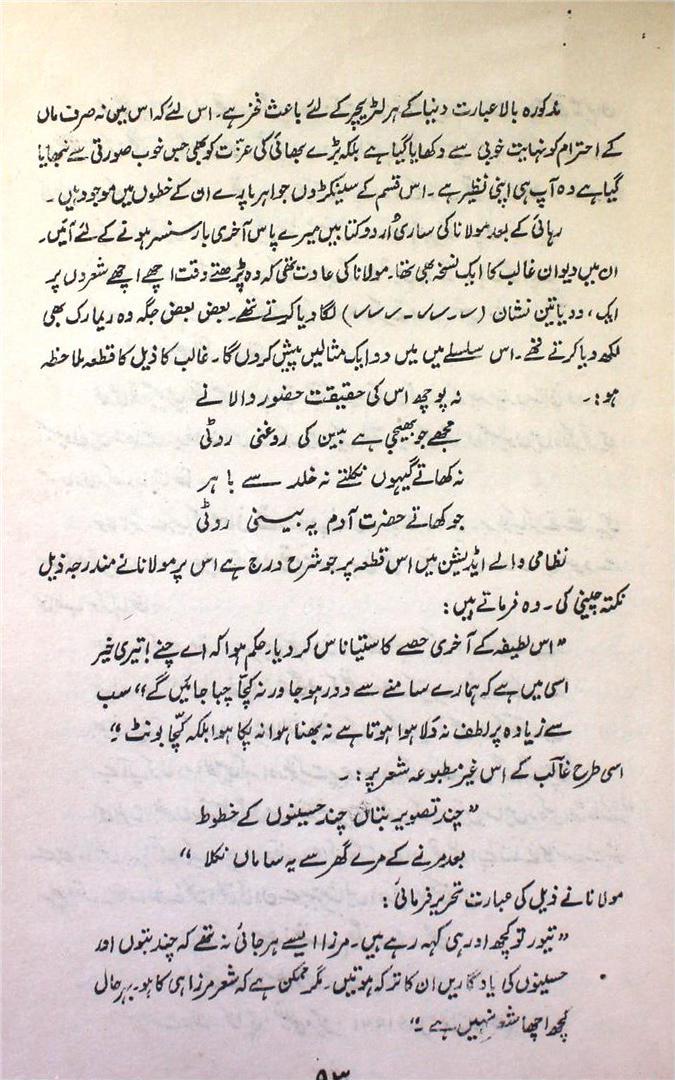 مذکورہ بالا عبارت دنیا کے ہر لٹریچر کے لئے باعث فخر ہے۔ اس لئے کہ اس میں نہ صرف ماں
کے احترام کو نہایت خوبی سے دکھایا گیا ہے بلکہ بڑے بھائی کی عزت کو بھی جس خوب صورتی سے نبھایا
گیا ہے وہ آپ ہی اپنی نظیر ہے۔ اس قسم کے سینکڑوں جواہر پارے ان کے خطوں میں موجود ہیں۔
رہائی کے بعد مولانا کی ساری اُردو کتابیں میرے پاس آخری بار سنسر ہونے کے لئے آئیں۔
ان میں دیوان غالب کا ایک نسخہ بھی تھا۔ مولانا کی عادت تھی کہ وہ پڑھتے وقت اچھے اچھے شعروں پر
ایک، دو یا تین نشان (؍ـ ؍؍ـ ؍؍؍) لگا دیا کرتے تھے۔ بعض بعض جگہ وہ ریمارک بھی
لکھ دیا کرتے تھے۔ اس سلسلے میں میں دو ایک مثالیں پیش کروں گا۔ غالب کا ذیل کا قطعہ ملاحظہ
ہو:۔ نہ پوچھ اس کی حقیقت حضور والا نے
مجھے جو بھیجی ہے بیسن کی روغنی روٹی
نہ کھاتے گیہوں نکلتے نہ خلد سے باہر
جو کھاتے حضرت آدم یہ بیسنی روٹی
نظامی والے ایڈیشن میں اس قطعہ پر جو شرح درج ہے اس پر مولانا نے مندرجہ ذیل
نکتہ چینی کی۔ وہ فرماتے ہیں:
"اس لطیفہ کے آخری حصے کا ستیاناس کر دیا۔ حکم ہوا کہ اے چنے! تیری خیر
اسی میں ہے کہ ہمارے سامنے سے دور ہو جا ورنہ کچّا چبا جائیں گے" سب
سے زیادہ پر لطف نہ دَلا ہوا ہوتا ہے نہ بھنا ہوا نہ پکا ہوا بلکہ کچّا بونٹ۔"
اسی طرح غالب کے اس غیر مطبوعہ شعر پر:۔
"چند تصویر بتاں چند حسینوں کے خطوط
بعد مرنے کے مرے گھر سے یہ ساماں نکلا"
مولانا نے ذیل کی عبارت تحریر فرمائی:
"تیور تو کچھ اور ہی کہہ رہے ہیں۔ مرزا ایسے ہرجائی نہ تھے کہ چند بتوں اور
حسینوں کی یادگاریں ان کا ترکہ ہوتیں۔ مگر ممکن ہے کہ شعر مرزا ہی کا ہو۔ بہر حال
کچھ اچھا شعر نہیں ہے۔"
۹۳